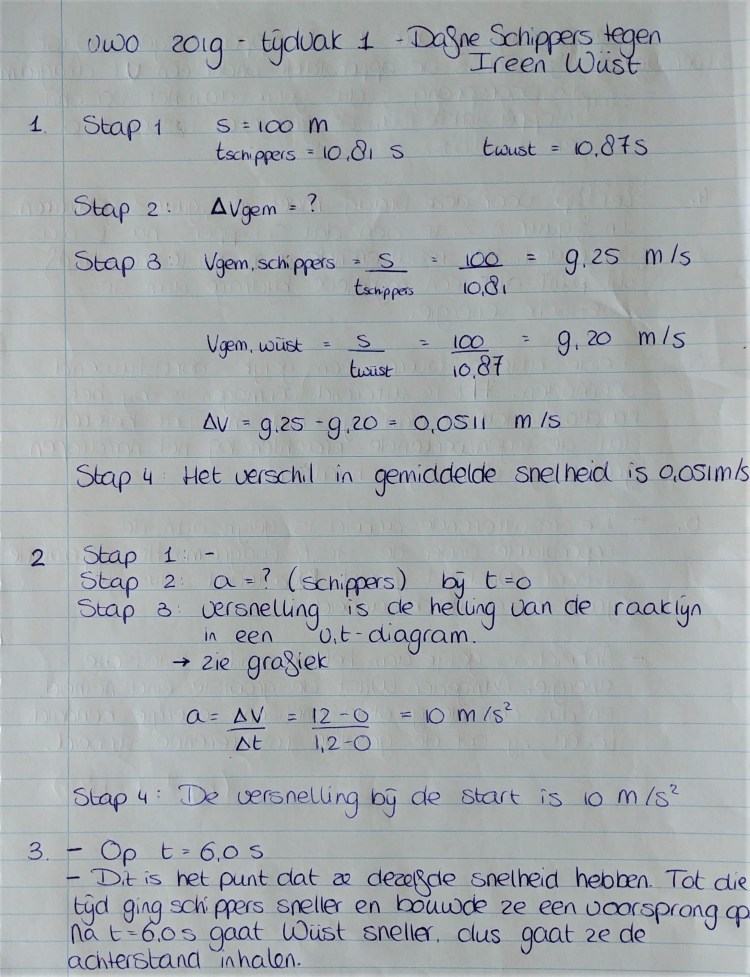 VWO 2019 - tijdvak 1 - Dafne Schippers tegen
Ireen Wüst
1. Stap 1: s = 100 m
tschippers = 10,81 s twust = 10,87 s
Stap 2: ΔVgem = ?
Stap 3: Vgem, schippers = s / tschippers = 100 / 10,81 = 9,25 m/s
Vgem, wüst = s / twüst = 100 / 10,87 = 9,20 m/s
ΔV = 9,25 - 9,20 = 0,0511 m/s
Stap 4: Het verschil in gemiddelde snelheid is 0,051 m/s
2 Stap 1: -
Stap 2: a = ? (schippers) bij t=0
Stap 3: versnelling is de helling van de raaklijn
in een v,t-diagram.
→ zie grafiek
a = ΔV / Δt = 12-0 / 1,2-0 = 10 m/s²
Stap 4: De versnelling bij de start is 10 m/s²
3. - Op t = 6,0 s
- Dit is het punt dat ze dezelfde snelheid hebben. Tot die
tijd ging schippers sneller en bouwde ze een voorsprong op
Na t = 6,0 s gaat Wüst sneller, dus gaat ze de
achterstand inhalen.